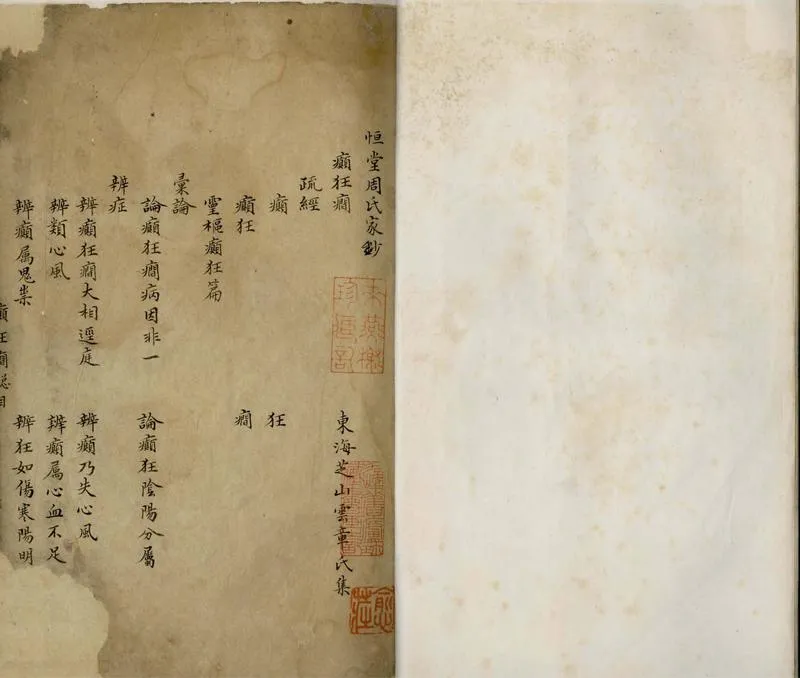 恒堂周氏家鈔
癲狂癇 東海芝山雲章氏集
疏經
癲 狂
癲狂 癇
靈樞癲狂篇
彙論
論癲狂癇病因非一 論癲狂陰陽分屬
辨症
辨癲狂癇大相逕庭 辨癲乃失心風
辨類心風 辨癲屬心血不足
辨癲属鬼祟 辨狂如傷寒陽明
癲狂癇總目